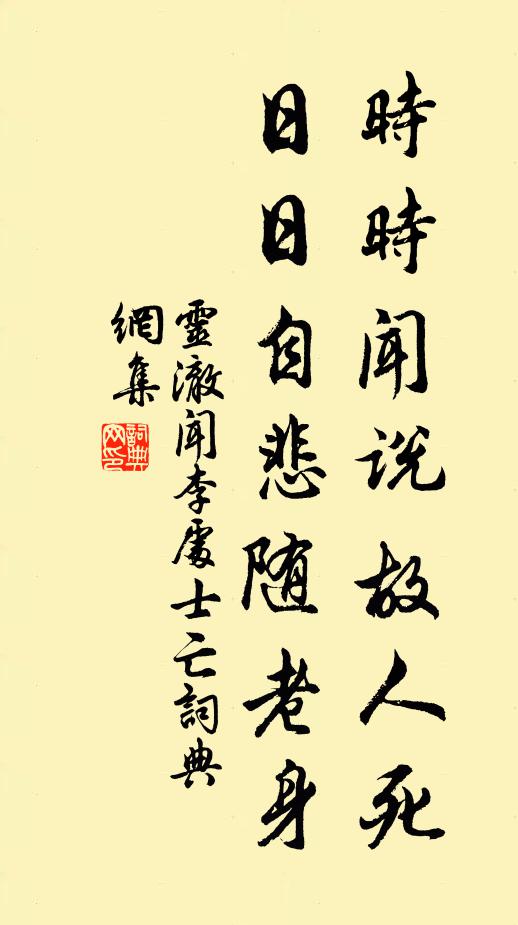 時時聞説故人死
日日自悲随老身
靈澈聞李處士亡詞典
網集
詞典
网印